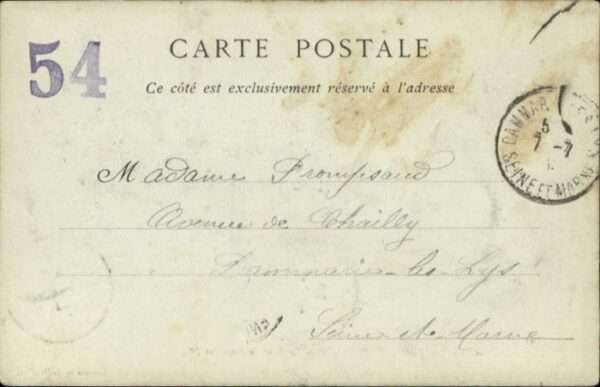 54
CARTE POSTALE
Ce côté est exclusivement réservé à l'adresse
DAMMAR
7 -7
SEINE ET MARNE
Madame Prompsaud
Avenue de Chailly
Dammarie-les-Lys
Seine et Marne